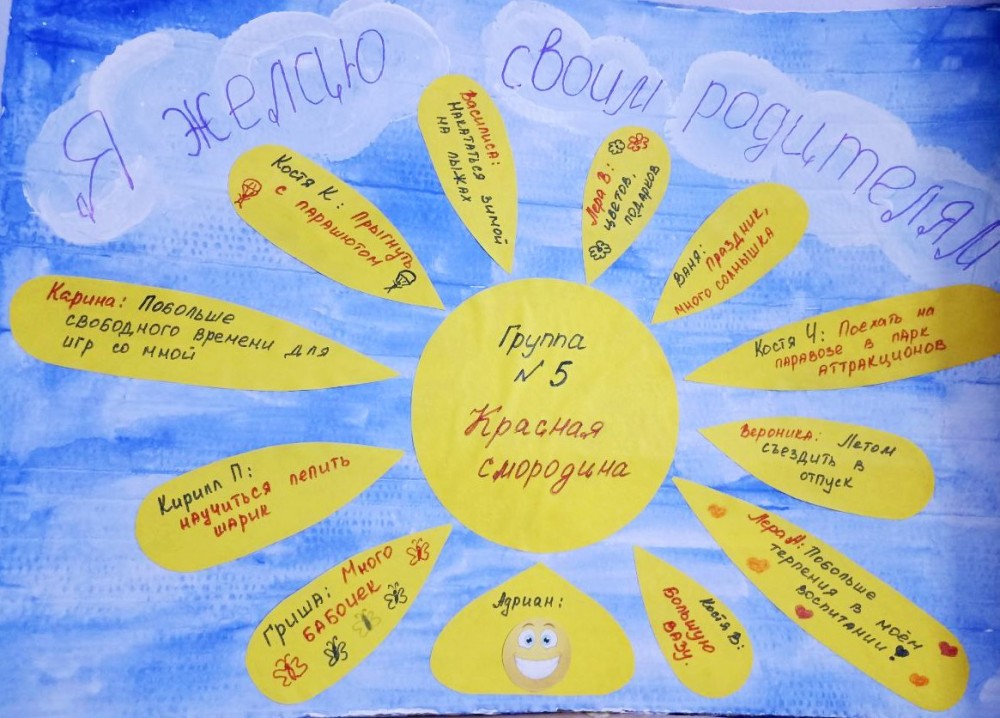 Я желаю своим родителям
Василиса:
накататься зимой
на лыжах
Лера В:
цветов,
подарков
Костя К: Прыгнуть
с парашютом
Ваня: Праздник,
много солнышка
Карина: Побольше
свободного времени для
игр со мной
Костя Ч: Поехать на
паравозе в парк
аттракционов
Группа
№ 5
Красная
смородина
Вероника: Летом
съездить в
отпуск
Кирилл П:
научиться лепить
шарик
Лера Л: Побольше
терпения в моём
воспитании!
Гриша: Много
бабочек
Адриан:
Костя В:
Большую
вазу.